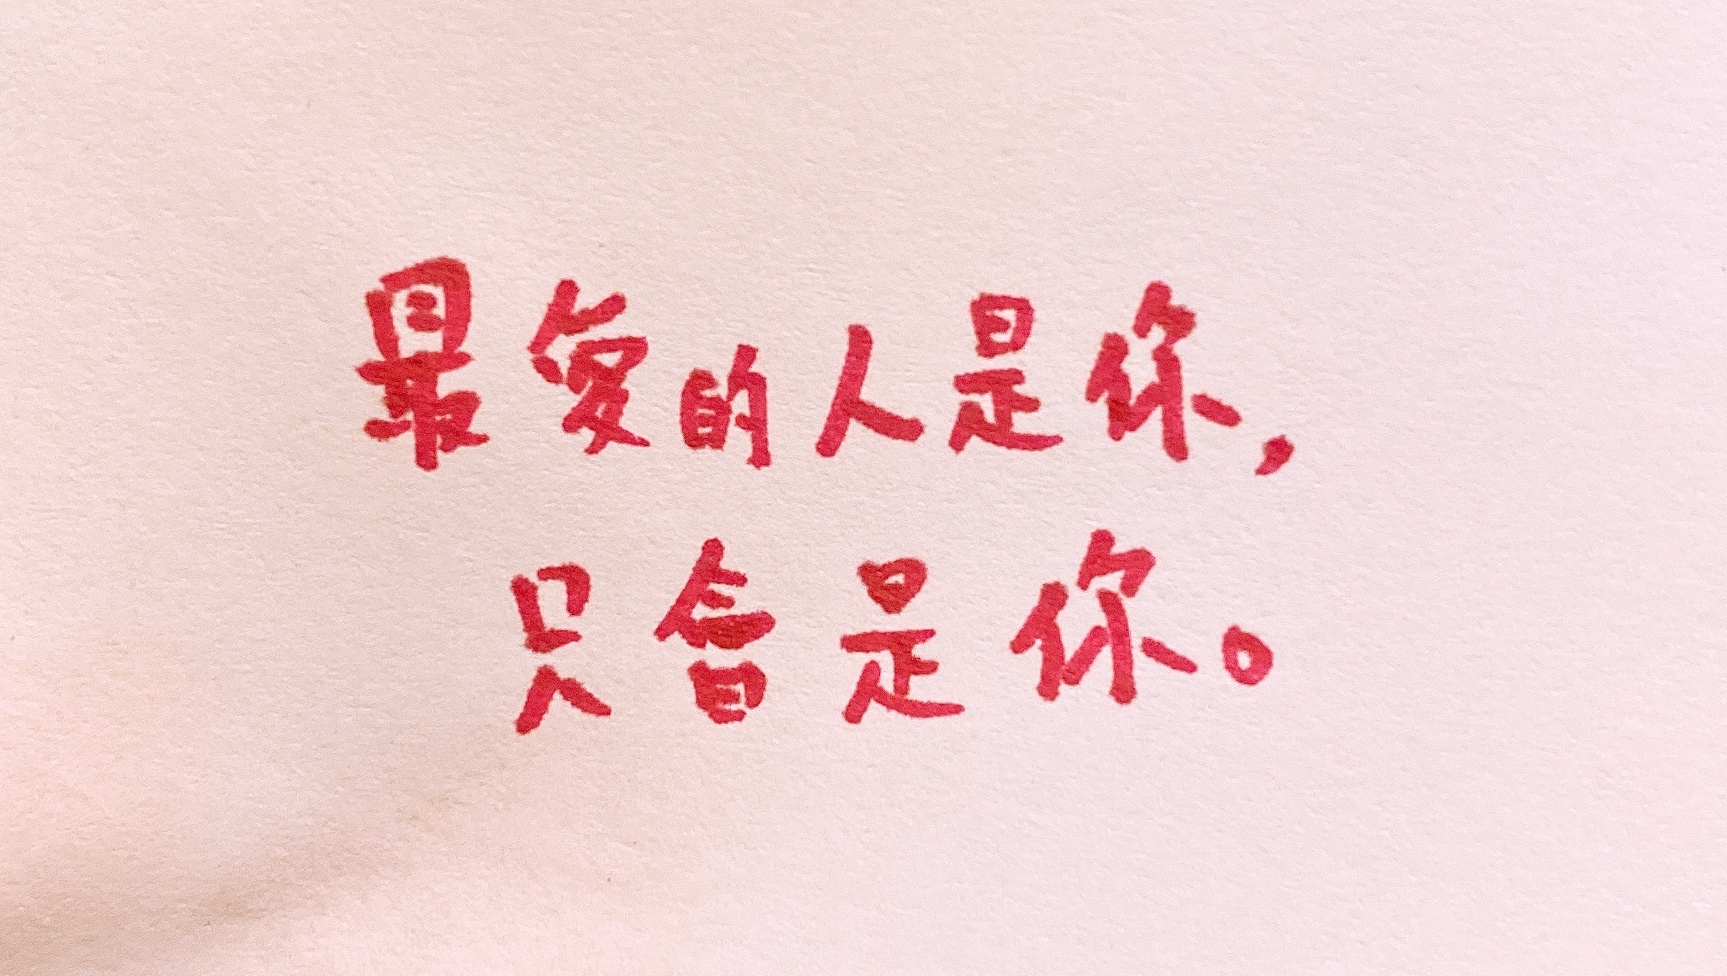 最愛的人是你，
只會是你。